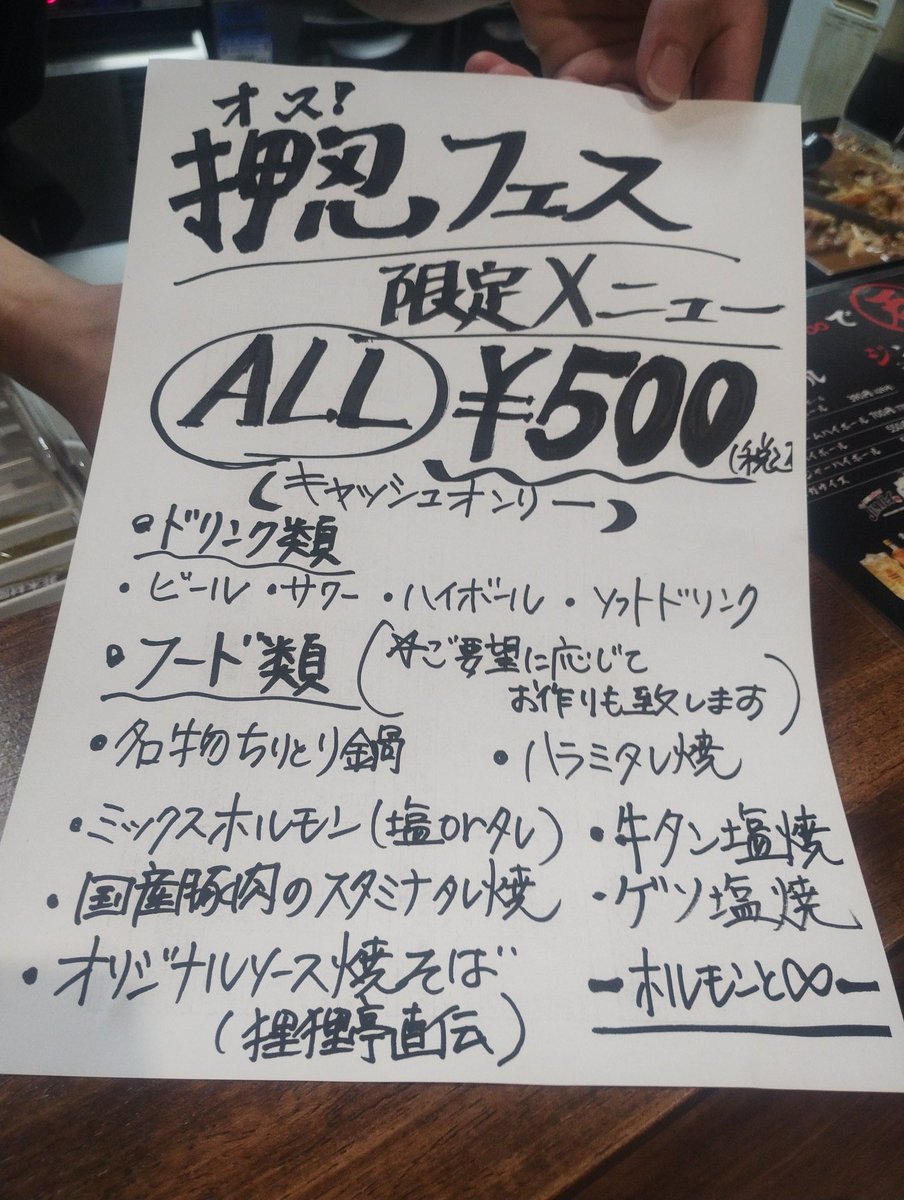 オス!
押忍フェス
限定メニュー
ALL ¥500(税込)
(キャッシュオンリー)
・ドリンク類
・ビール ・サワー ・ハイボール ・ソフトドリンク
・フード類 (☆ご要望に応じて
お作りも致します)
・名物ちりとり鍋 ・ハラミタレ焼
・ミックスホルモン(塩orタレ) ・牛タン塩焼
・国産豚肉のスタミナタレ焼 ・ゲソ塩焼
・オリジナルソース焼そば
(狸狸亭直伝)
-ホルモンと∞-
∞で
ジン
ハイボール